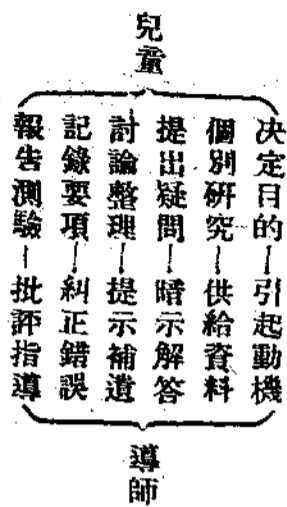 兒童
決定目的—引起動機
個別研究—供給資料
提出疑問—暗示解答
討論整理—提示補遺
記錄要項—糾正錯誤
報告測驗—批評指導
導師